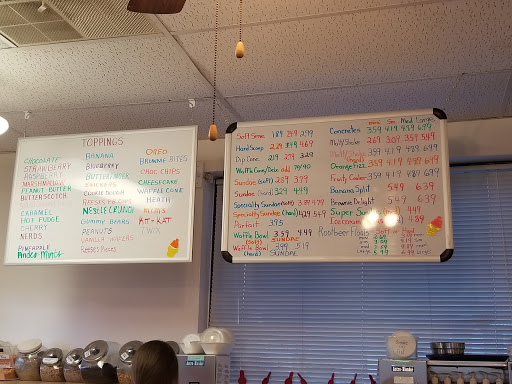 TOPPINGS
CHOCOLATE
STRAWBERRY
RASPBERRY
MARSHMALLOW
PEANUT BUTTER
BUTTERSCOTCH
CARAMEL
HOT FUDGE
CHERRY
NERDS
PINEAPPLE
Andes Mints
BANANA
BLUEBERRY
BUTTERFINGER
SNICKERS
COOKIE DOUGH
REESES CUPS
NESTLE CRUNCH
GUMMY BEARS
PEANUTS
VANILLA WAFERS
Reeses Pieces
OREO
BROWNIE BITES
CHOC CHIPS
CHEESECAKE
WAFFLE CONE
HEATH
M&Ms
KIT-KAT
TWIX
Soft Serve 1.89 2.49 2.99
Hard Scoop 2.29 3.59 4.69
Dip Cone 2.19 2.79 3.29
Waffle Cone/Cake add .70/.90
Sundae (soft) 2.69 3.99
Sundae (hard) 3.29 4.49
Specialty Sundae (soft) 3.19 4.79
Specialty Sundae (hard) 4.29 5.49
Parfait 3.95
Waffle Bowl 3.59 4.49
(soft) SUNDAE
Waffle Bowl 3.99 5.19
(hard) SUNDAE
mini Sm Med Large
Concretes 3.59 4.19 4.89 6.99
Malt/Shake 2.69 3.09 3.59 5.49
3.59 4.19 4.89 6.99
Orange Fizz 3.59 4.19 4.89 6.99
Fruity Cooler 3.59 4.19 4.89 6.99
Banana Split 5.49 6.39
Brownie Delight 5.49 6.39
Super Sundae 4.49
Ice cream 4.89
Rootbeer Floats